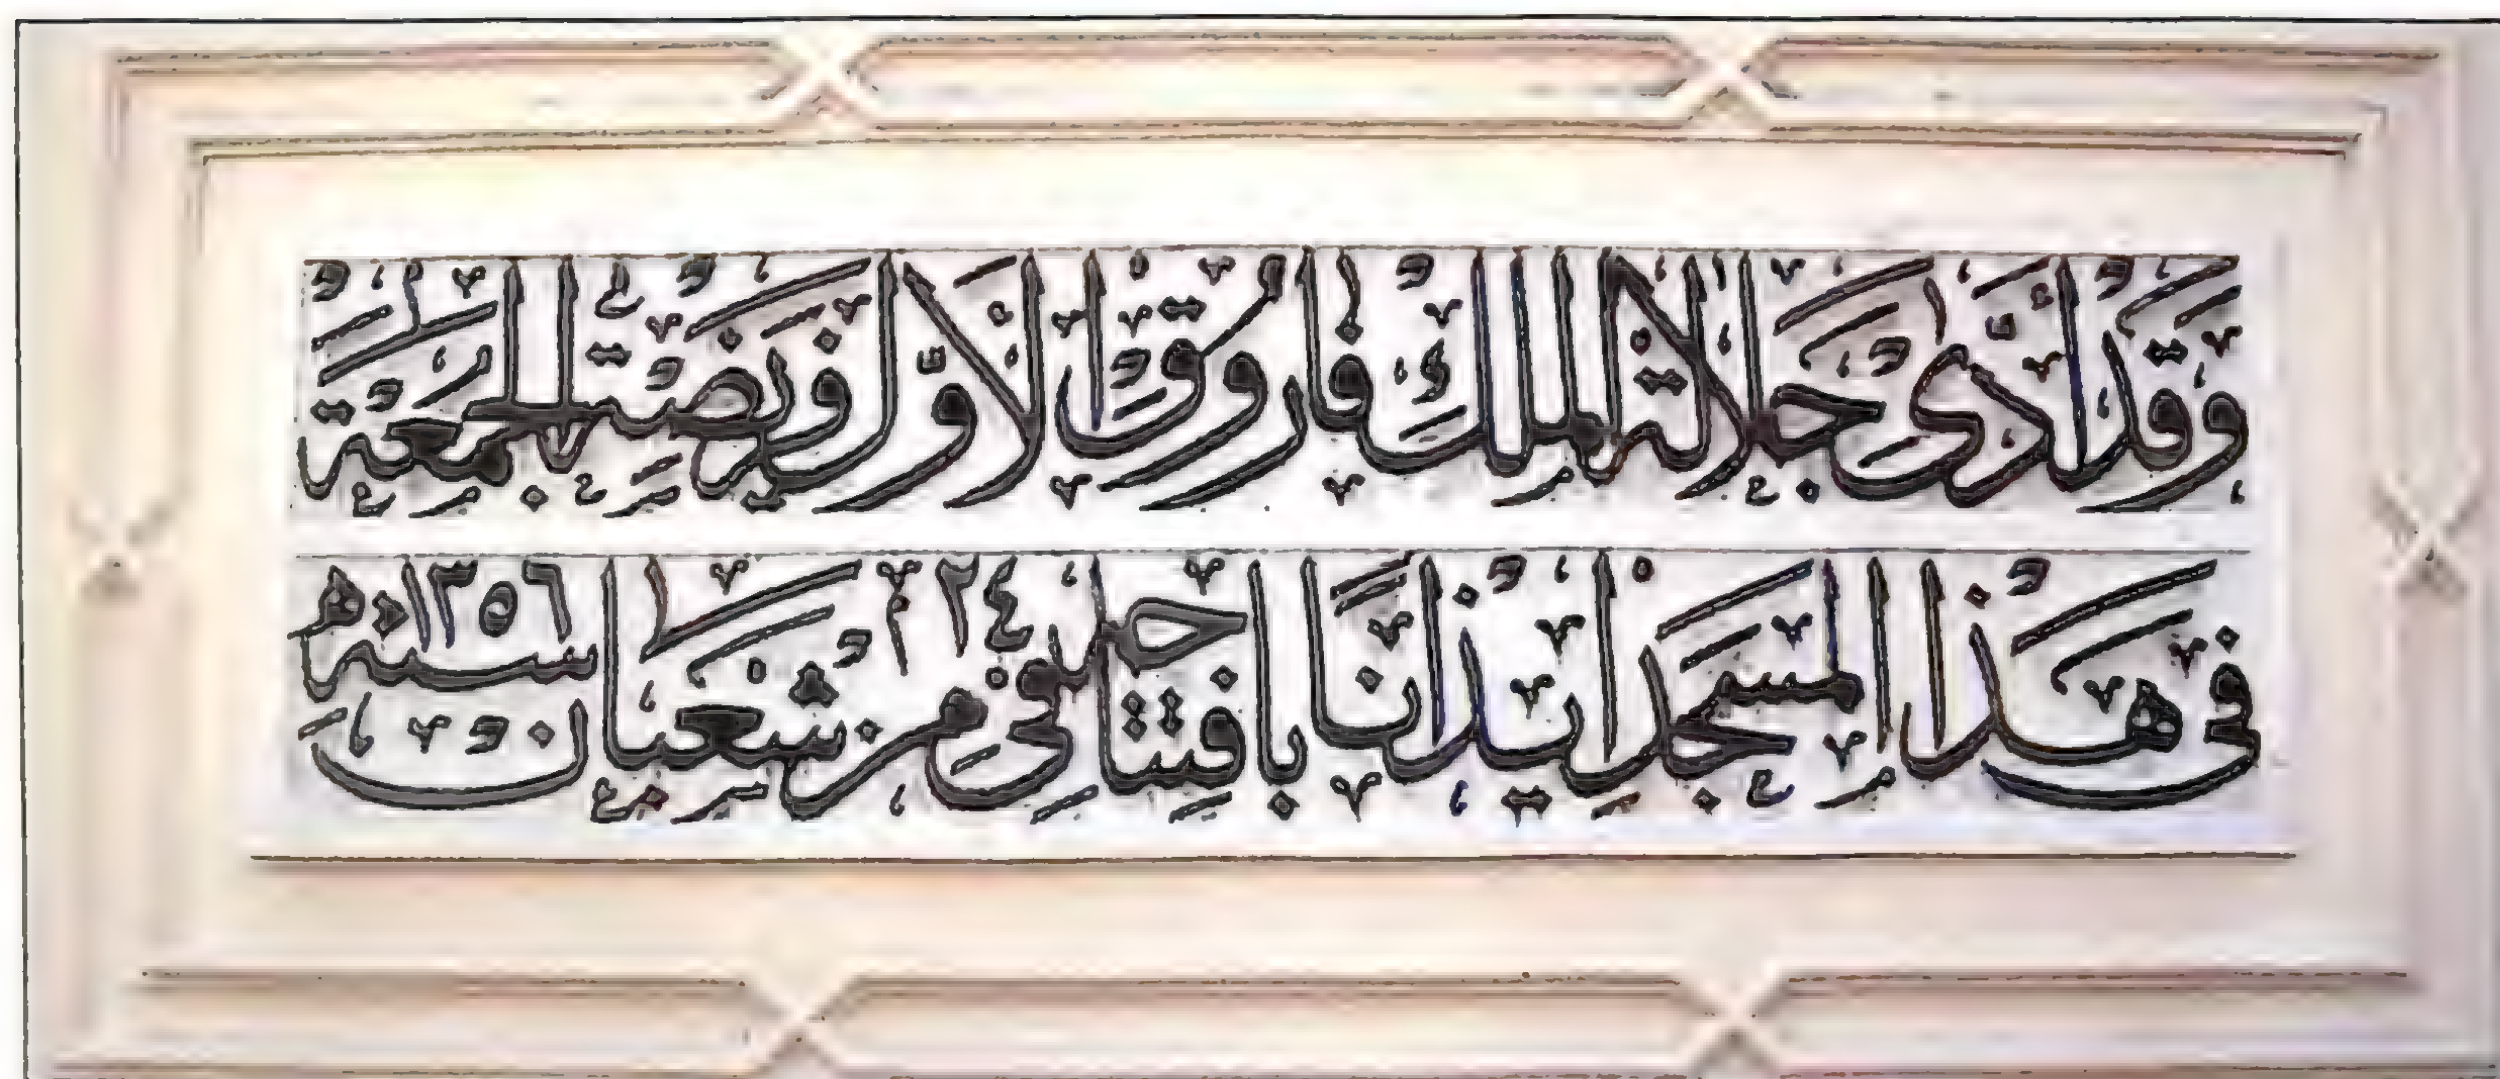 وَقَدْ أَدَّى جَلَالَةُ الْمَلِكِ فَارُوقٌ الْأَوَّلُ فَرِيضَةَ الْجُمُعَةِ
فِي هَذَا الْمَسْجِدِ إِيذَانًا بِافْتِتَاحِهِ فِي ٢٤ مِنْ شَعْبَانَ سَنَةَ ١٣٥٦ هـ